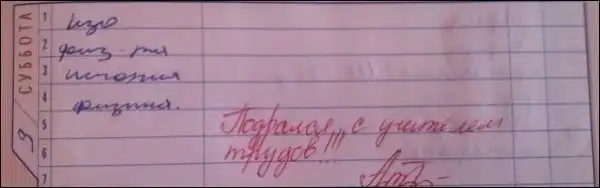 СУББОТА
9
1 изо
2 физ-ра
3 история
4 физика.
5 Подрался!!! с учителем
6 трудов!!!
7